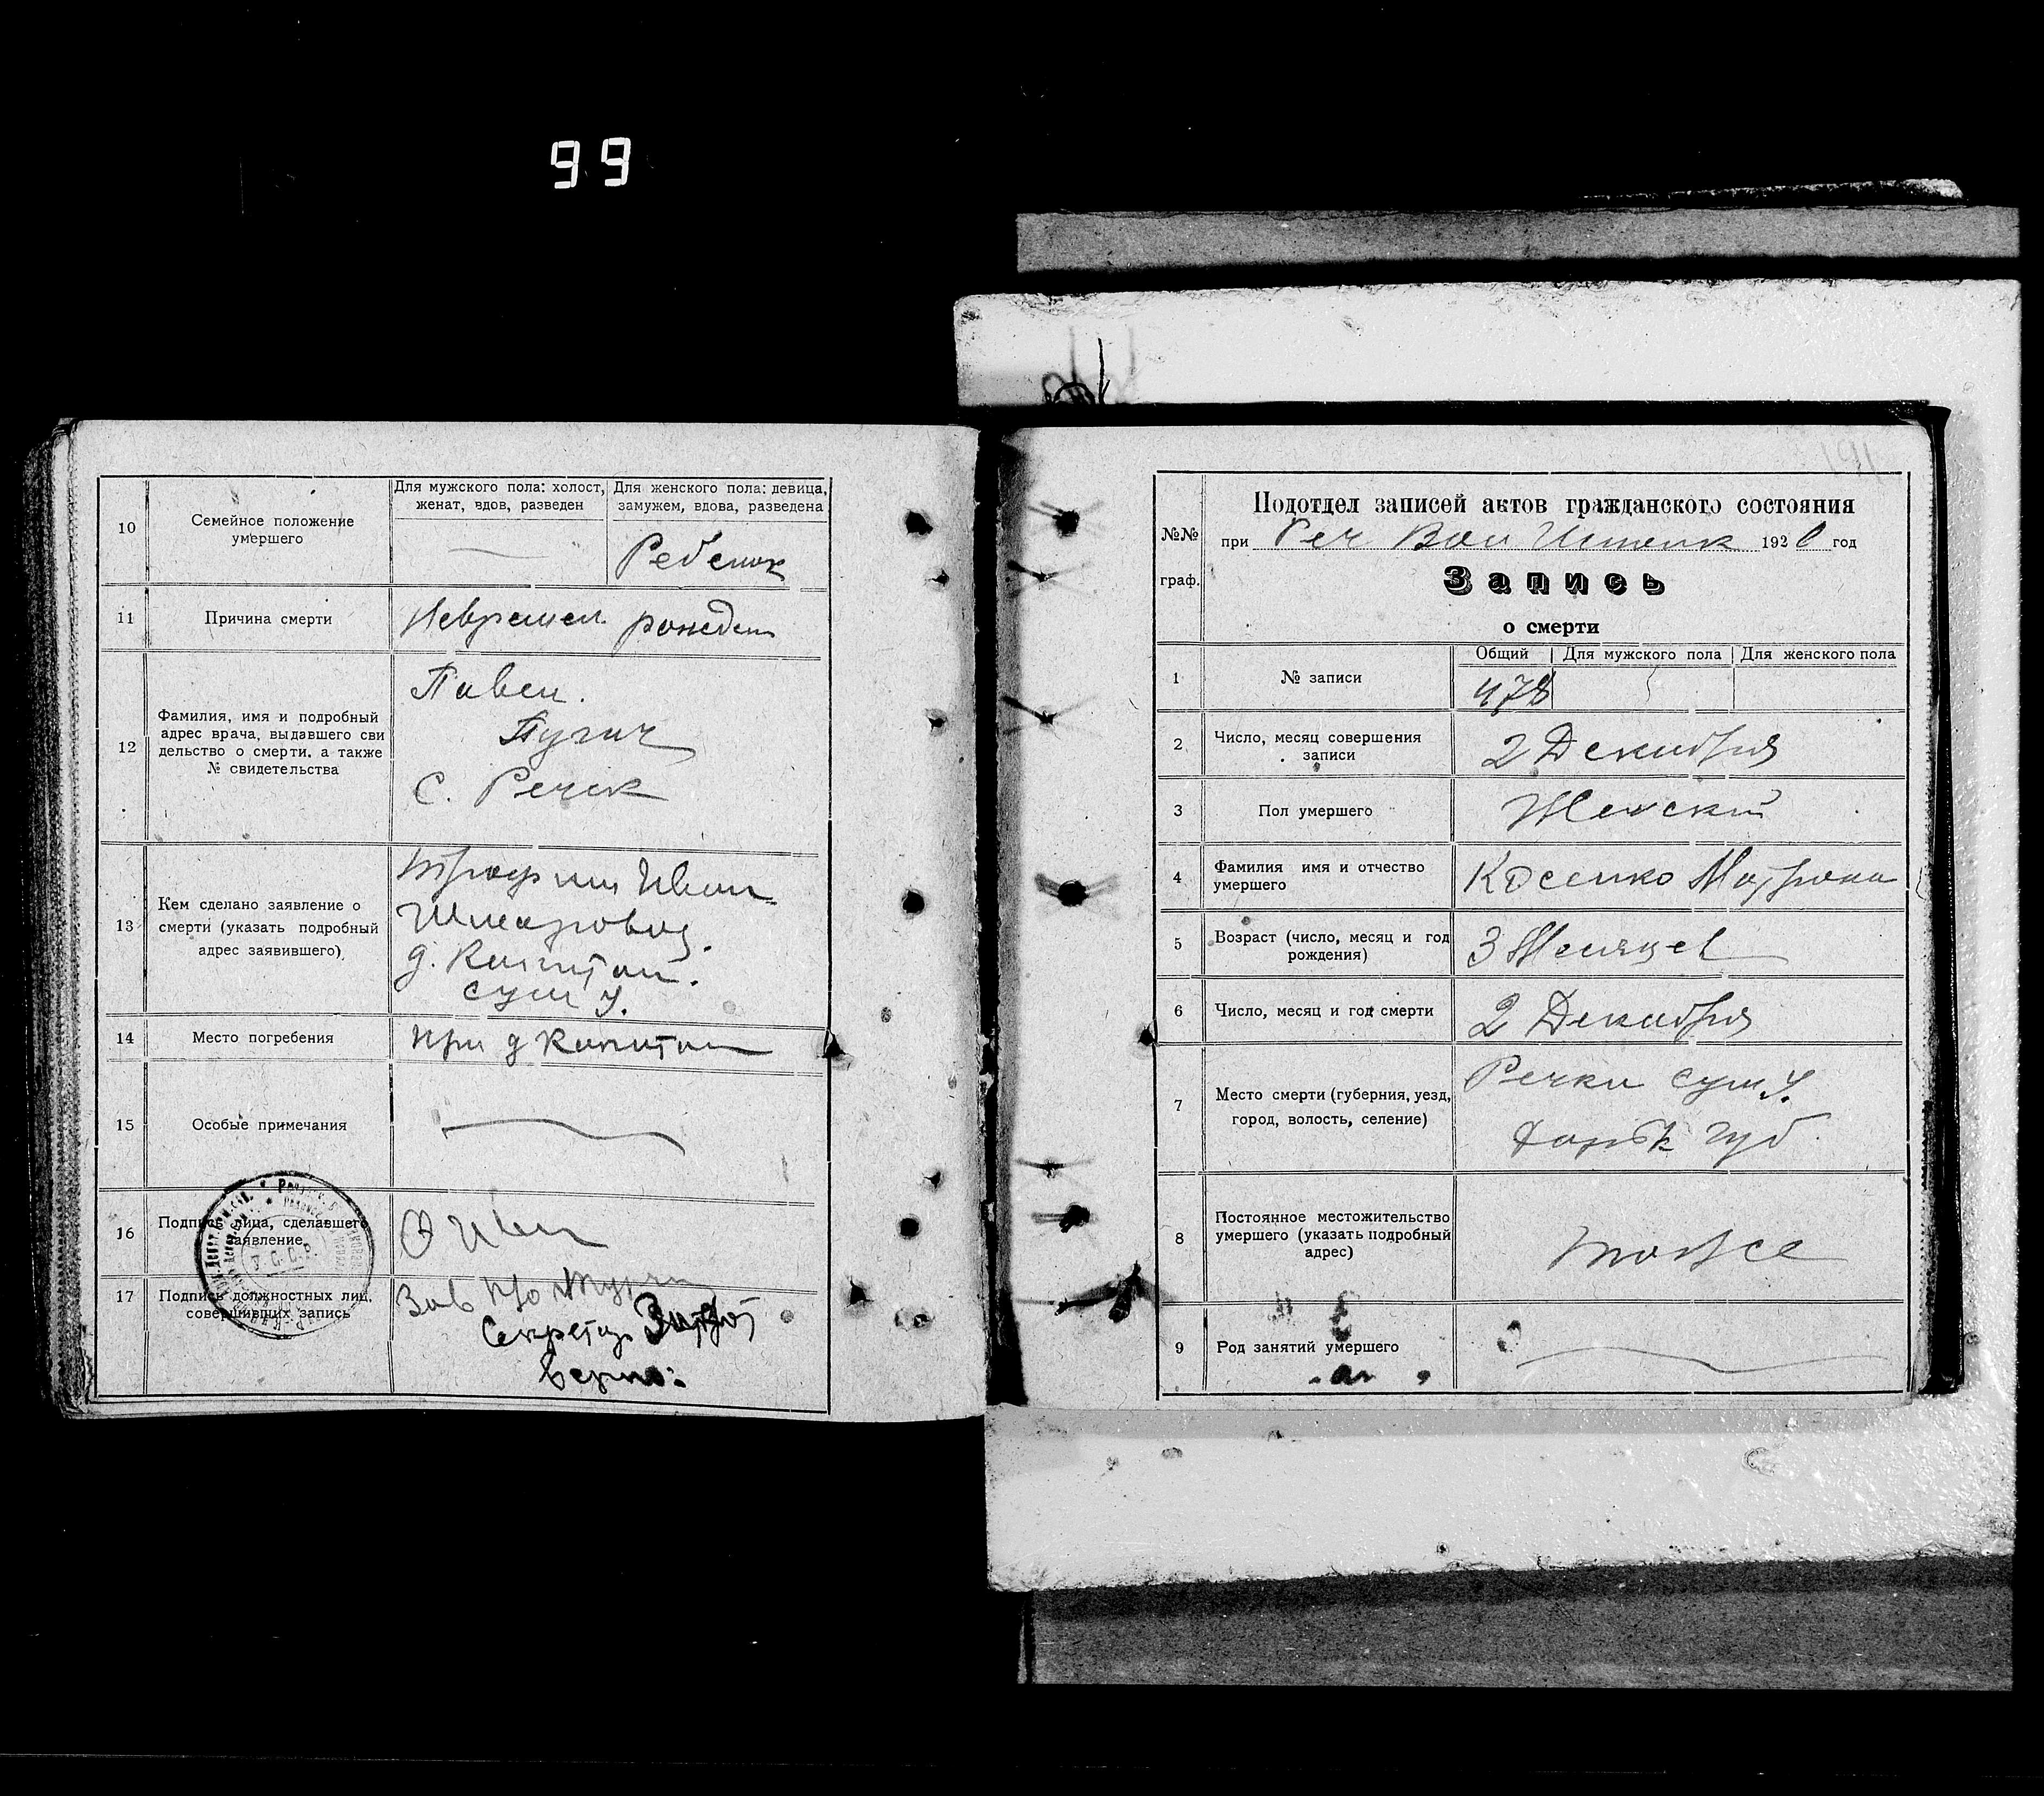 99
10
Семейное положение
умершего
Для мужского пола: холост,
женат, вдов, разведен
Для женского пола: девица,
замужем, вдова, разведена
Ребенок
11
Причина смерти
Невремен. рожден
12
Фамилия, имя и подробный
адрес врача, выдавшего сви
дельство о смерти, а также
№ свидетельства
Павел
С. Речек
13
Кем сделано заявление о
смерти (указать подробный
адрес заявившего)
Трофим Иван
д. Капитан.
сум у.
14
Место погребения
при д Капитан
15
Особые примечания
16
Подпись лица, сделавшего
заявление
17
Подпись должностных лиц,
совершивших запись
У.С.С.Р.
Зав п/о
Секретарь
Верно:
191
№№
граф.
Подотдел записей актов гражданского состояния
при Реч Вол Исполк 1920 год
Запись
о смерти
1
№ записи
Общий
Для мужского пола
Для женского пола
478
2
Число, месяц совершения
записи
2 Декабря
3
Пол умершего
Женский
4
Фамилия имя и отчество
умершего
Косенко Матрона
5
Возраст (число, месяц и год
рождения)
3 Месяцев
6
Число, месяц и год смерти
2 Декабря
7
Место смерти (губерния, уезд,
город, волость, селение)
Речки сум у.
Харьк губ.
8
Постоянное местожительство
умершего (указать подробный
адрес)
тоже
9
Род занятий умершего